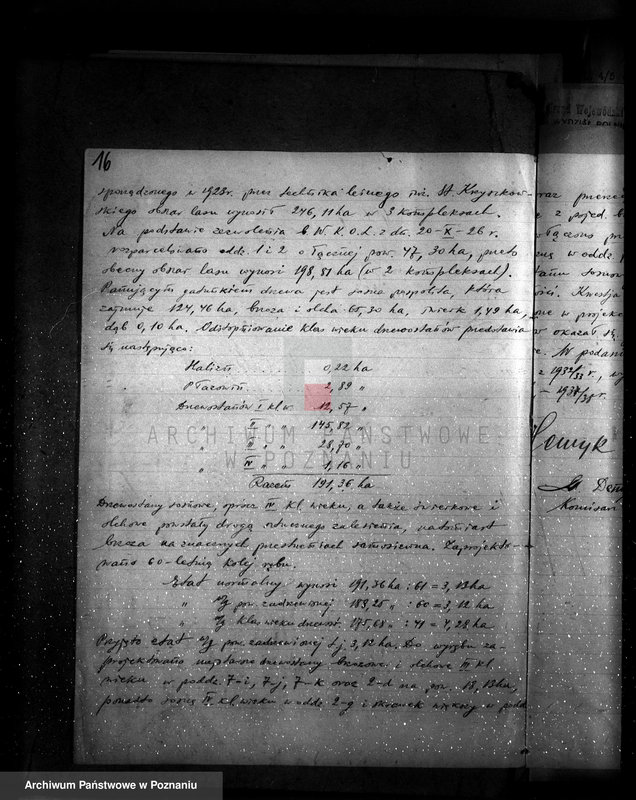 16
sporządzonego w 1923 r. przez technika leśnego inż. St. Krzyszkow-
skiego obszar lasu wynosił 246,11 ha w 3 kompleksach.
Na podstawie zezwolenia b. W. K. O. L. z dn. 20-X-26 r.
rozparcelowano oddz. 1 i 2 o łącznej pow. 47,30 ha, przeto
obecny obszar lasu wynosi 198,81 ha (w 2 kompleksach).
Panującym gatunkiem drzewa jest sosna pospolita, która
zajmuje 124,46 ha, brzoza i olcha 65,30 ha, świerk 1,49 ha,
dąb 0,10 ha. Ustopniowanie klas wieku drzewostanów przedstawia
się następująco:
Halizn 0,22 ha
Płazowin 2,89 "
Drzewostanów I kl. w. 12,57 "
" II " " 145,82 "
" III " " 28,70 "
" IV " 1,16 "
Razem 191,36 ha
Drzewostany sosnowe, oprócz IV kl. wieku, a także świerkowe i
olchowe powstały drogą sztucznego zalesienia, natomiast
brzoza na znacznych przestrzeniach samosiewna. Zaprojekto-
wano 60-letnią kolej rębu.
Etat normalny wynosi 191,36 ha : 61 = 3,13 ha
" wg pow. zadrzewionej 188,25 " : 60 = 3,12 ha
" wg klas wieku drzewost. 175,68 " : 41 = 4,28 ha
Przyjęto etat wg pow. zadrzewionej t.j. 3,12 ha. Do wyrębu za-
projektowano drzewostany brzozowe i olchowe III kl.
wieku w poddz. 7-i, 7-j, 7-k oraz 2-d na pow. 13,13 ha,
ponadto sosnę II kl. wieku w oddz. 2-g i w podd
4/6
Urząd Wojewódzki
WYDZIAŁ ROLN
oraz
w oddz.
w projek
w okazał się
z 1932/33 r.,
- 1937/38 r.
Komisarz
ARCHIWUM PAŃSTWOWE
W POZNANIU
Archiwum Państwowe w Poznaniu